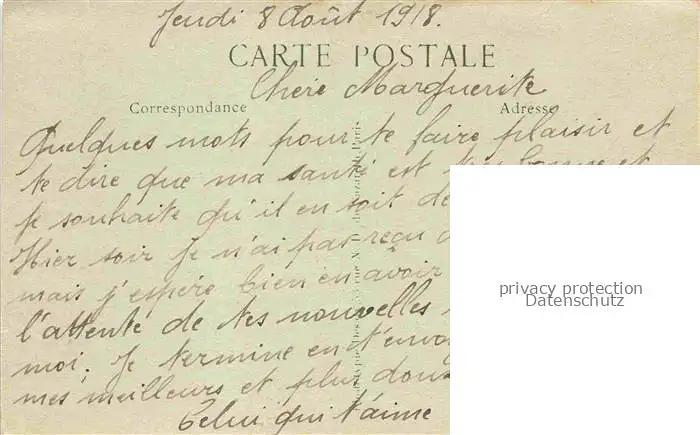 Jeudi 8 Août 1918.
CARTE POSTALE
Chère Marguerite
Correspondance
Adresse
Quelques mots pour te faire plaisir et
te dire que ma santé est bonne et
je souhaite qu'il en soit de
Hier soir je n'ai pas reçu
mais j'espère bien en avoir
l'attente de tes nouvelles
moi. Je termine en t'envoy
mes meilleurs et plus doux
Celui qui t'aime
privacy protection
Datenschutz